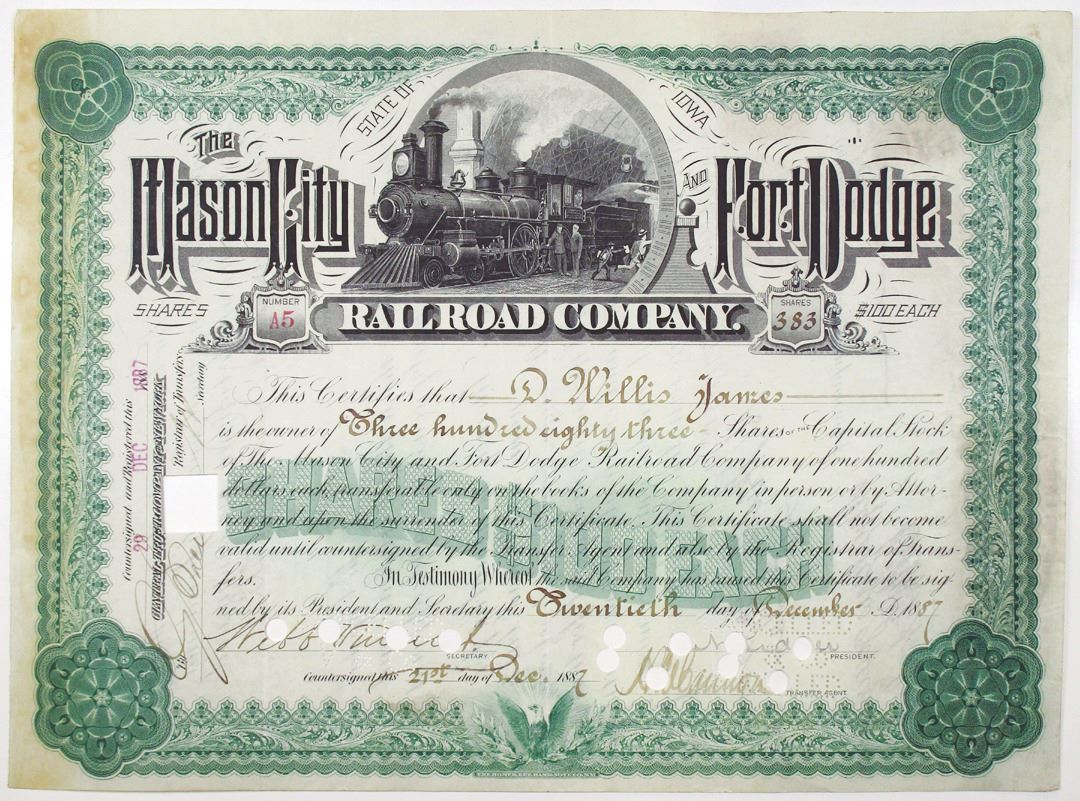 STATE OF IOWA
The
Mason City AND Fort Dodge
SHARES
NUMBER
A5
RAILROAD COMPANY.
SHARES
383
$100 EACH
This Certifies that D. Willis James
is the owner of Three hundred eighty three Shares OF THE Capital Stock
of The Mason City and Fort Dodge Railroad Company of one hundred
dollars each transferable only on the books of the Company in person or by Attor-
ney and upon the surrender of this Certificate. This Certificate shall not become
valid until countersigned by the Transfer Agent and also by the Registrar of Trans-
fers. In Testimony Whereof the said Company has caused this Certificate to be sig-
ned by its President and Secretary this Twentieth day of December A.D. 1887
SHARES $100 EACH
SECRETARY.
PRESIDENT.
Countersigned this 21st day of Dec. 1887
TRANSFER AGENT
Countersigned and Registered this
29 DEC 1887
Registrar of Transfers
Secretary